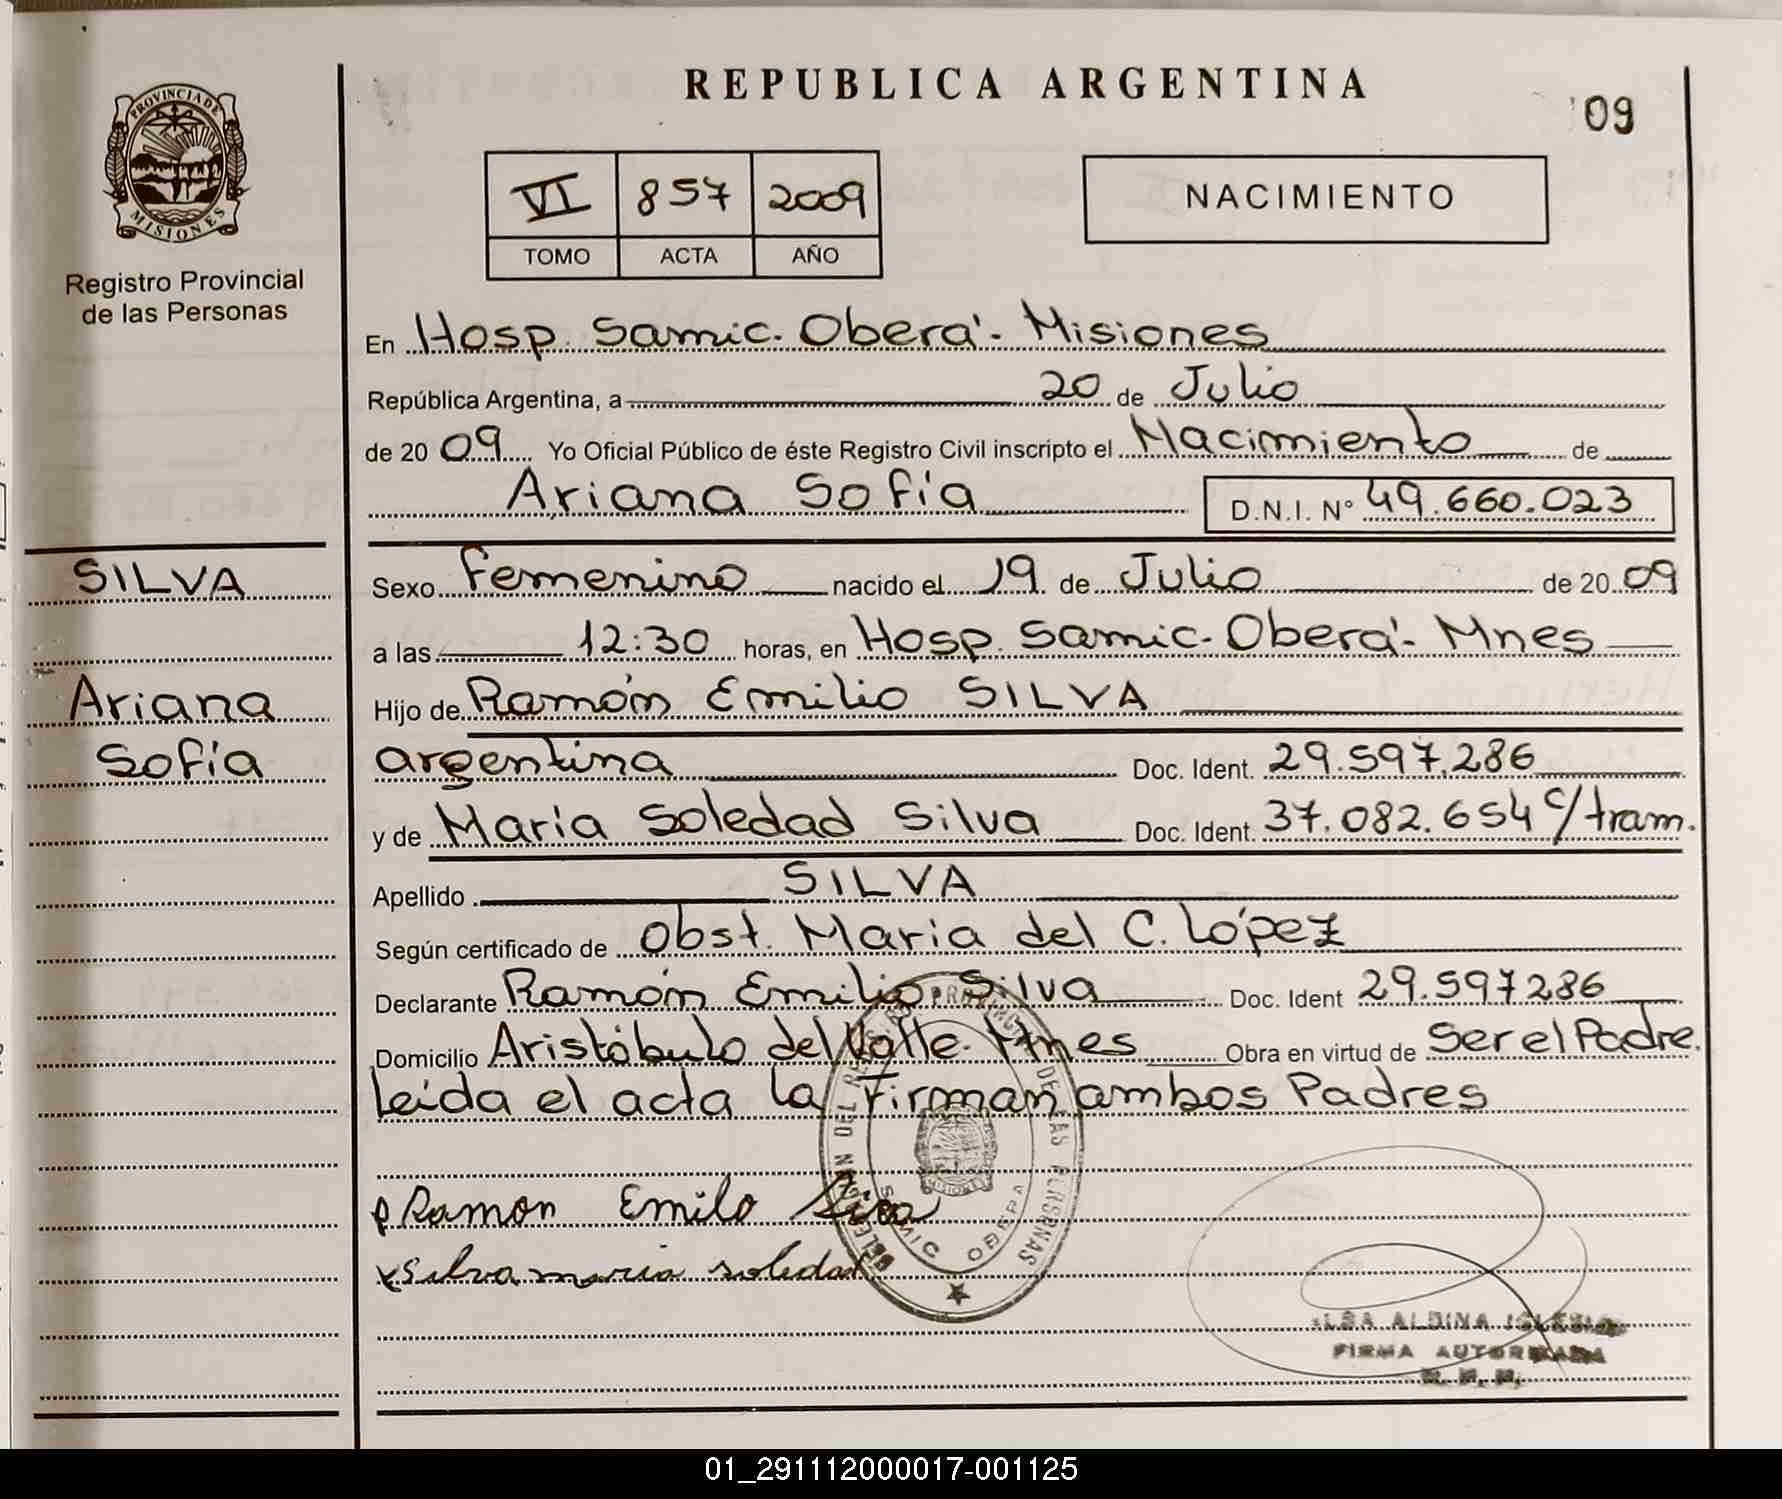 REPUBLICA ARGENTINA
'09
PROVINCIA DE MISIONES
Registro Provincial
de las Personas
VI 857 2009
TOMO ACTA AÑO
NACIMIENTO
En Hosp. Samic. Oberá. Misiones
República Argentina, a 20 de Julio
de 20 09 Yo Oficial Público de éste Registro Civil inscripto el Nacimiento de
Ariana Sofía D.N.I. N° 49.660.023
SILVA
Ariana
Sofía
Sexo Femenino nacido el 19 de Julio de 20 09
a las 12:30 horas, en Hosp. Samic. Oberá. Mnes
Hijo de Ramón Emilio SILVA
argentina Doc. Ident. 29.597.286
y de María Soledad Silva Doc. Ident. 37.082.654 c/tram.
Apellido SILVA
Según certificado de Obst. Maria del C. López
Declarante Ramón Emilio Silva Doc. Ident 29.597286
Domicilio Aristóbulo del Valle. Mnes Obra en virtud de Ser el Padre.
Leída el acta la Firman ambos Padres
Ramon Emilo
Silva maria soledad
SAMIC OBERA
ALDINA IGLESIAS
FIRMA AUTORIZADA
01_291112000017-001125